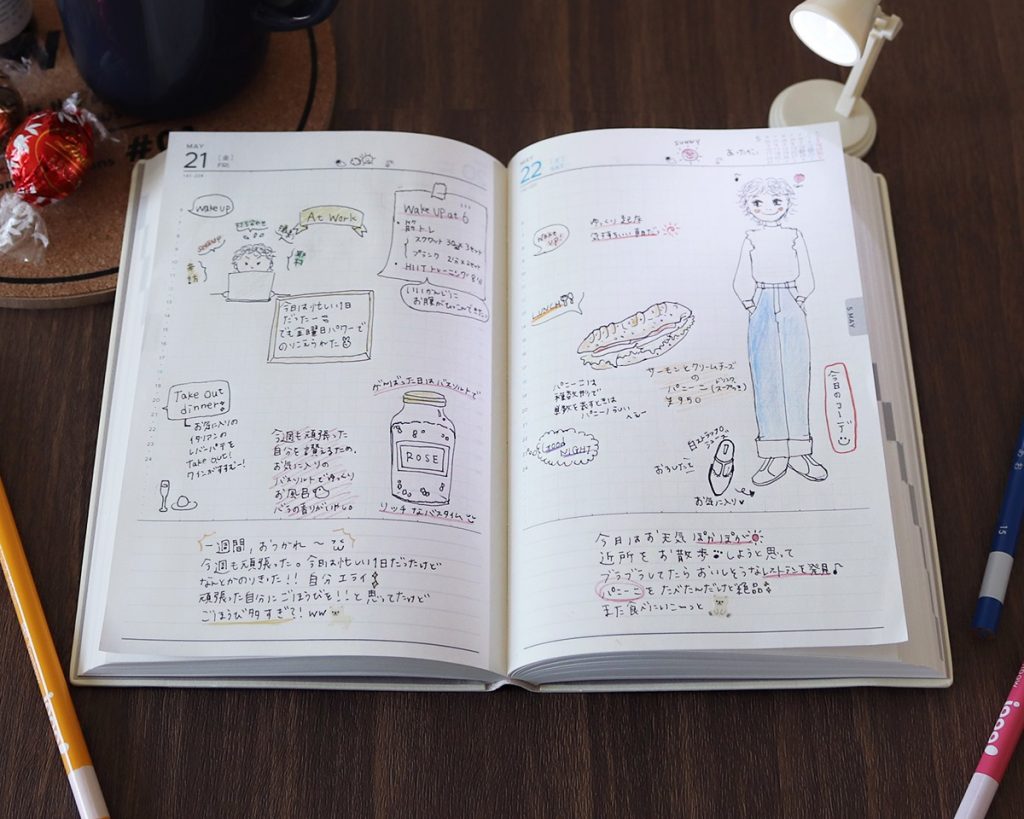 MAY
21 [金]
FRI
141-224
wake up
At Work
Wake up at 6
・筋トレ
スクワット 30回×3セット
プランク 2分×2セット
・HIIT トレーニング
いいかんじに
お腹がへっこんできた
今日は忙しい1日
だったー
でも金曜日パワーで
のりこえられた
Take out
dinner!
お気に入りの
イタリアンの
レバーパテを
Take out!
ワインがすすむー!
今週も頑張った
自分を讃えるため、
お気に入りの
バスソルトでゆっくり
お風呂
バラの香りがいやし。
がんばった日はバスソルトで
ROSE
リッチなバスタイム
一週間、おつかれ〜
今週も頑張った。今日は忙しい1日だったけど
なんとかのりきった!! 自分エライ
頑張った自分にごほうびを!!と思ってたけど
ごほうび多すぎて! ww
MAY
22
SAT
SUNNY
あったかい
Wake
up!
ゆっくり起きた
LUNCH
サーモンとクリームチーズ
の
パニーニ
¥950
パニーニは
複数を表すときは
パニーノらしい
へぇ〜
GOOD
NIGHT
白ストラップの
シューズ
おろしたて
お気に入り
今日のコーデ
今日はお天気ぽかぽか
近所をお散歩しようと思って
ブラブラしてたらおいしそうなレストランを発見♪
パニーニをたべたんだけど絶品
また食べにいこーっと
5 MAY
15